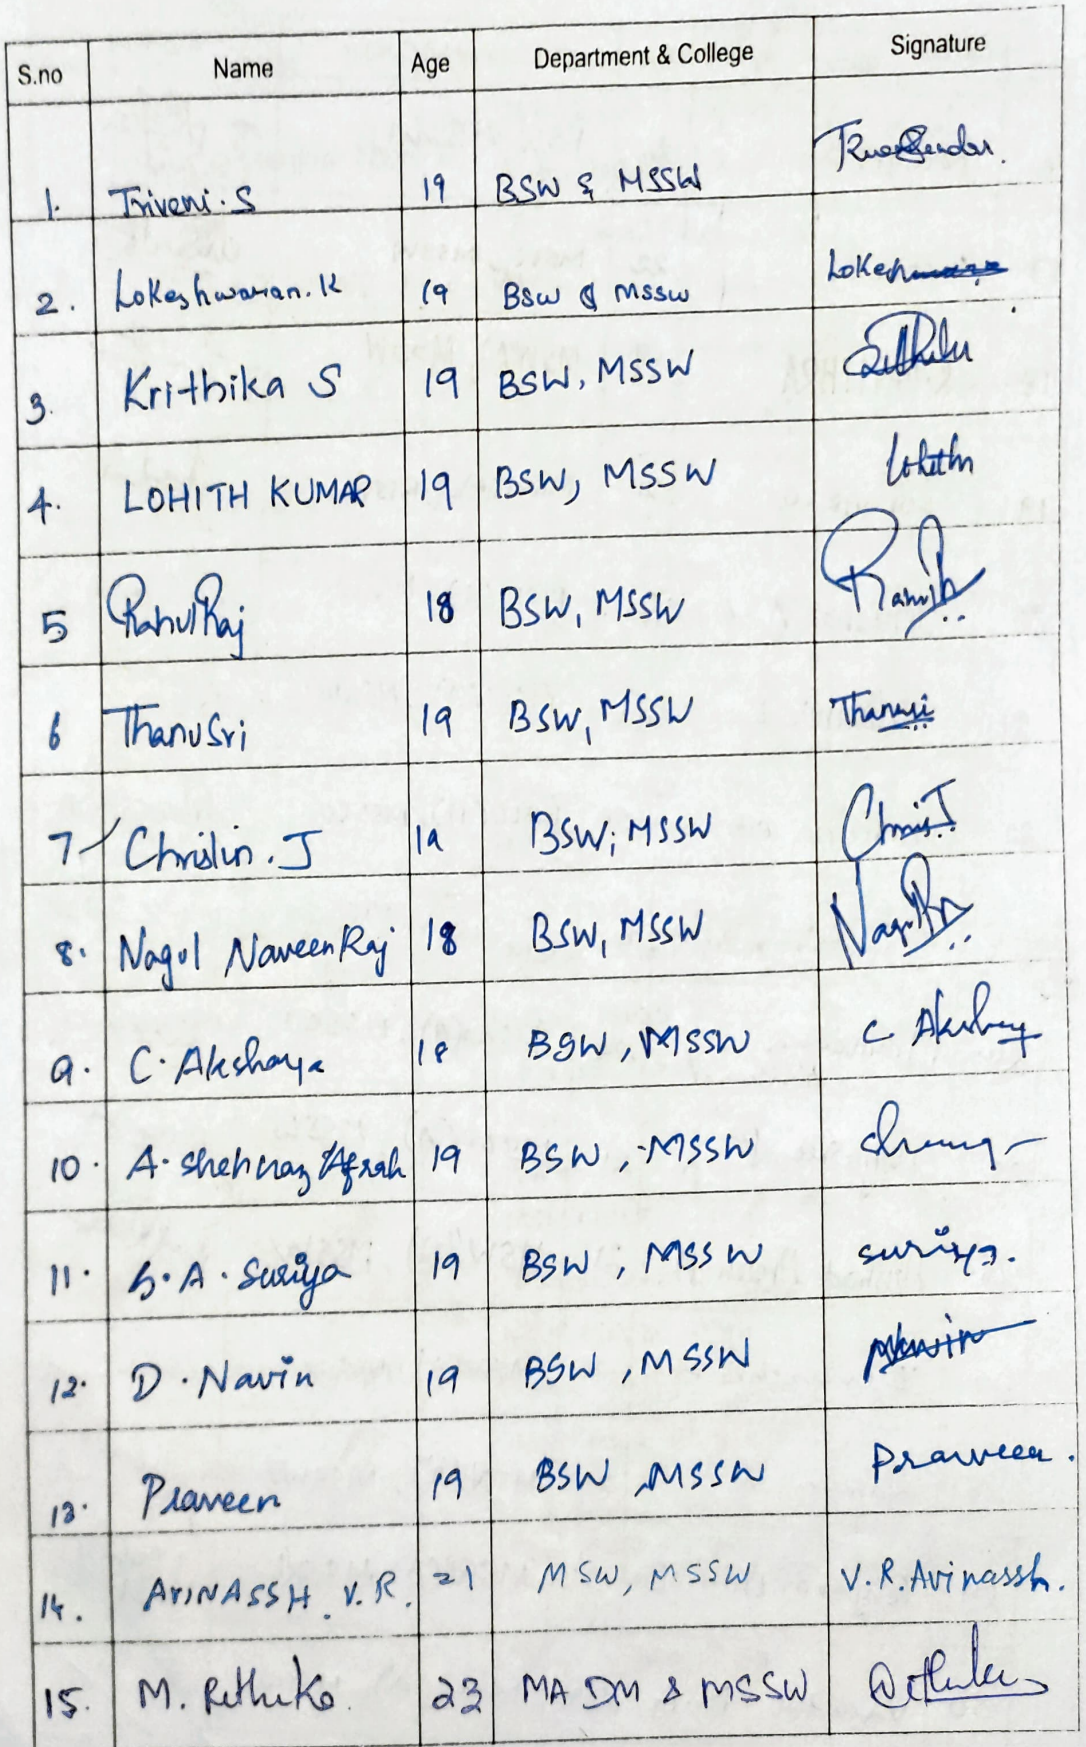 S.no Name Age Department & College Signature
1. Triveni. S 19 BSW & MSSW
2. Lokeshwaran. K 19 BSW & MSSW
3. Krithika S 19 BSW, MSSW
4. LOHITH KUMAR 19 BSW, MSSW Lohith
5 Rahul Raj 18 BSW, MSSW
6 ThanuSri 19 BSW, MSSW
7 Chrislin. J 19 BSW, MSSW
8. Nagul Naveen Raj 18 BSW, MSSW
9. C. Akshaya 18 BSW, MSSW C Akshay
10. A. Shehnaz Afrah 19 BSW, MSSW
11. S. A. Suriya 19 BSW, MSSW suriya.
12. D. Navin 19 BSW, MSSW
13. Praveen 19 BSW, MSSW Praveen.
14. AriNASSH. V. R. 21 MSW, MSSW V. R. Avinassh.
15. M. Rethika. 23 MA DM & MSSW